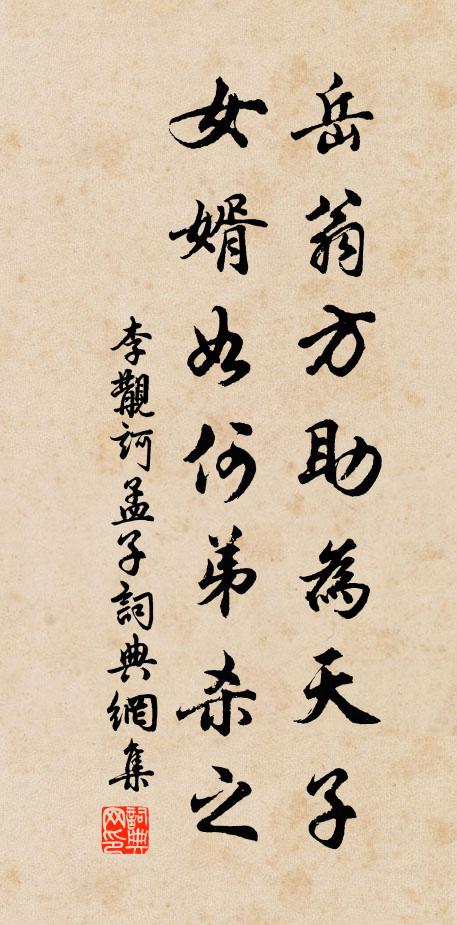 岳翁方助為天子
女婿如何弟杀之
李覯訶孟子詞典網集
詞典网印